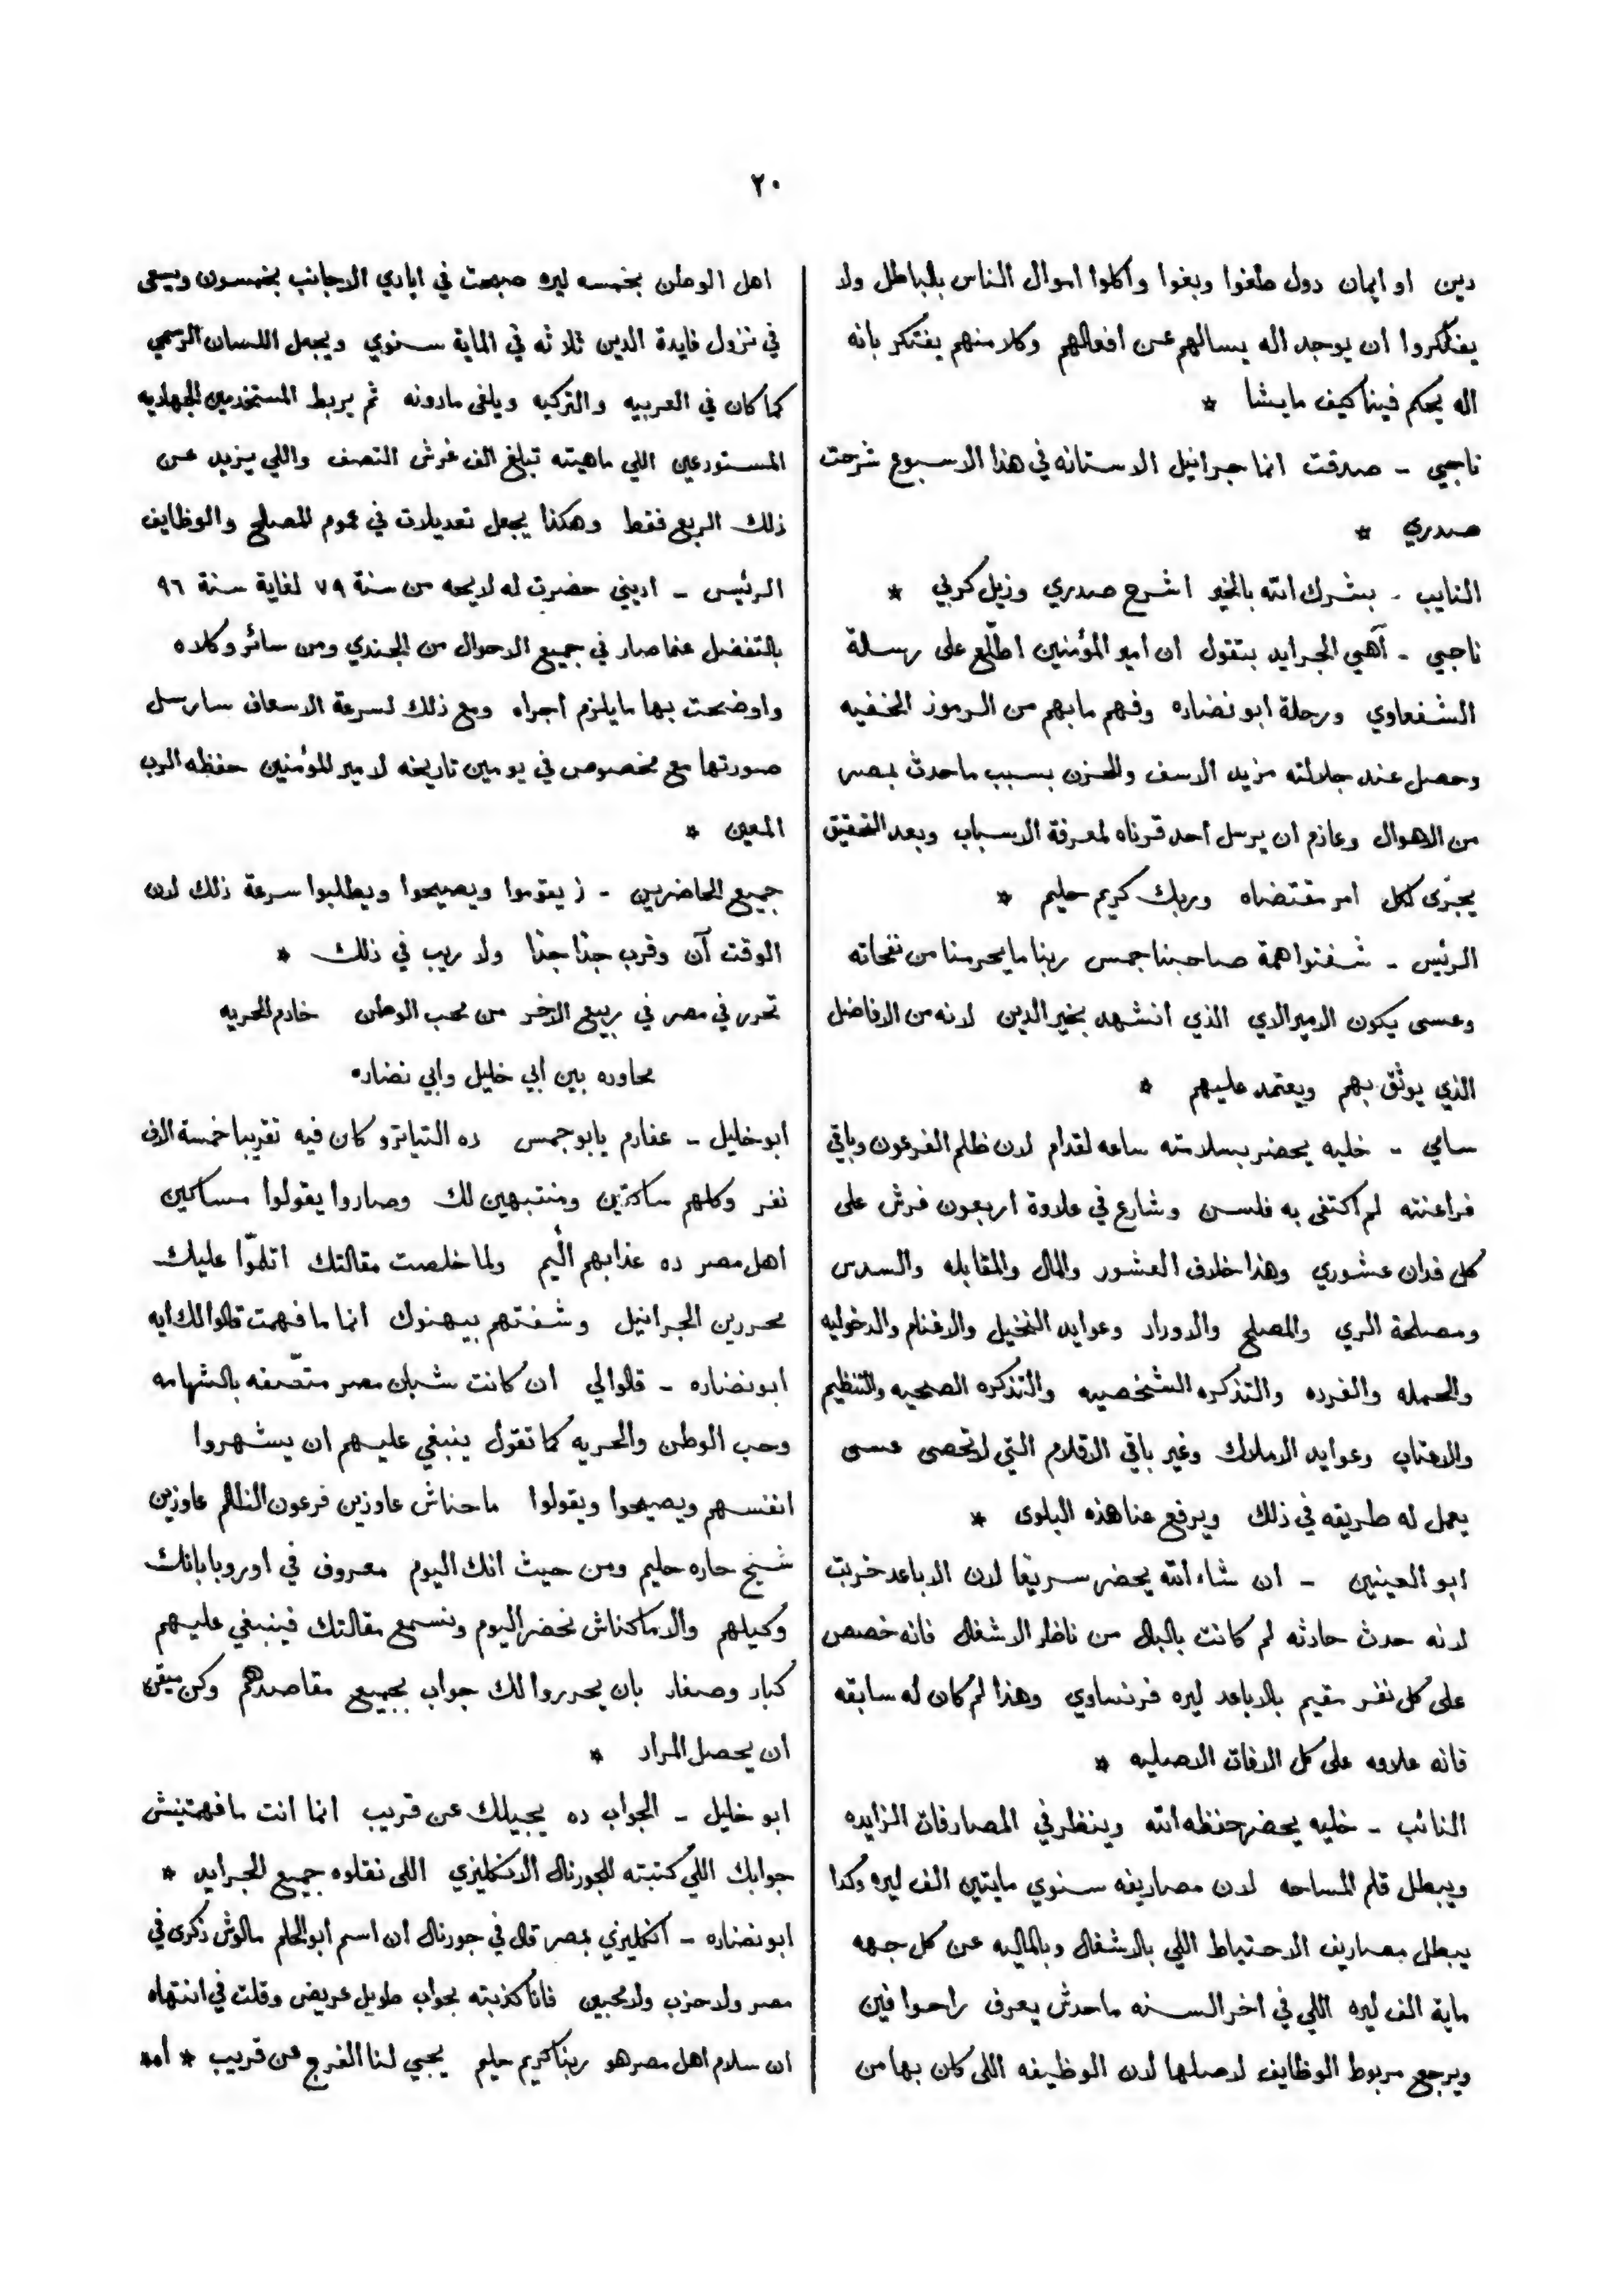 ٢٠
دين او ايمان دول طغوا وبغوا وأكلوا اموال الناس بالباطل ولا
يفتكروا ان يوجد اله يسالهم عن افعالهم وكلا منهم يفتكر بانه
اله يحكم فينا كيف ما يشا *
ناجي - صدقت انما جرانيل الاستانه في هذا الاسبوع شرحت
صدري *
النايب - بشرك الله بالخير اشرح صدري وزيل كربي *
ناجي - آهي الجرايد بتقول ان امير المؤمنين اطّلع على رسالة
الشفعاوي ورحلة ابو نضاره وفهم مابهم من الرموز الخفيه
وحصل عند جلالته مزيد الاسف والحزن بسبب ماحدث بمصر
من الاهوال وعازم ان يرسل أحد قرناه لمعرفة الاسباب وبعد التحقيق
يجرى لكل امر مقتضاه وربك كريم حليم *
الرئيس - شفتوا همة صاحبنا جمس ربنا ما يحرمنا من نفحاته
وعسى يكون الاميرالاي الذي انشهد بخير الدين لانه من الافاضل
الذي يوثق بهم ويعتمد عليهم *
سامي - خليه يحضر بسلامته ساعه لقدام لان ظلم الفرعون وباقي
فراعنته لم اكتفى به فلسن وشارع في علاوة اربعون غرش على
كل فدان عشوري وهذا خلاف العشور والمال والمقابله والسدس
ومصلحة الري والمصلح والاوراد وعوايد النخيل والاغنام والدخوليه
والحمله والفرده والتذكره الشخصيه والتذكره الصحيه والتنظيم
والاعتاب وعوايد الاملاك وغير باقي الاقلام التي لاتحصى عسى
يعمل له طريقه في ذلك ويرفع عنا هذه البلوى *
ابو العينين - ان شاء الله يحضر سريعًا لان الاباعد خربت
لانه حدث حادثه لم كانت بالبال من ناظر الاشغال فانه خصص
على كل نفر مقيم بالاباعد ليره فرنساوي وهذا لم كان له سابقه
فانه علاوه على كل الافات الاصليه *
النائب - خليه يحضر حفظه الله وينظر في المصارفات الزايده
ويبطل قلم المساحه لان مصاريفه سنوي مايتين الف ليره وكدا
يبطل مصاريف الاحتياط اللي بالاشغال وبالماليه عن كل جهه
ماية الف ليره اللي في اخر السنه ماحدش يعرف راحوا فين
ويرجع مربوط الوظايف لاصلها لان الوظيفه اللى كان بها من
اهل الوطن بخمسه ليره صبحت في ايادي الاجانب بخمسون ويسعى
في نزول فايدة الدين ثلاثه في الماية سنوي ويجعل اللسان الرسمي
كما كان في العربيه والتركيه ويلغى مادونه ثم يربط المستخدمين الجهاديه
المستودعين اللي ماهيته تبلغ الف غرش النصف واللي يزيد عن
ذلك الربع فقط وهكذا يجعل تعديلات في عموم المصلح والوظايف
الرئيس - اديني حضرت له لايحه من سنة ٧٩ لغاية سنة ٩٦
بالتفضل عنما صار في جميع الاحوال من الجندي ومن سائر وكلاه
واوضحت بها مايلزم اجراه ومع ذلك لسرعة الاسعاف سارسل
صورتها مع مخصوص في يومين تاريخه لامير المؤمنين حفظه الرب
المعين *
جميع الحاضرين - ( يقوموا ويصيحوا ويطلبوا سرعة ذلك لان
الوقت آن وقرب جدًا جدًا ولا ريب في ذلك *
تحرر في مصر في ربيع الاخر من محب الوطن خادم الحريه
محاوره بين أبي خليل وابي نضاره
ابو خليل - عفارم يابو جمس ده التياترو كان فيه تقريبا خمسة الاف
نفر وكلهم ساكتين ومنتبهين لك وصاروا يقولوا مساكين
اهل مصر ده عذابهم اليم ولما خلصت مقالتك اتلمّوا عليك
محررين الجرانيل وشفتهم بيهنوك انما ما فهمت قالوا لك ايه
ابو نضاره - قالوا لي ان كانت شبان مصر متّصفه بالشهامه
وحب الوطن والحريه كما تقول ينبغي عليهم ان يشهروا
انفسهم ويصيحوا ويقولوا ماحناش عاوزين فرعون الظالم عاوزين
شيخ حاره حليم ومن حيث انك اليوم معروف في اوروبا بانك
وكيلهم والا ماكناش نحضر اليوم ونسمع مقالتك فينبغي عليهم
كبار وصغار بان يحرروا لك جواب بجميع مقاصدهم وكن ميقن
ان يحصل المراد *
ابو خليل - الجواب ده يجيلك عن قريب انما انت ما فهمتنيش
جوابك اللي كتبته للجورنال الانكليزي اللى نقلوه جميع الجرايد *
ابو نضاره - انكليزي بمصر قال في جورنال ان اسم ابو الحلم مالوش ذكرى في
مصر ولا حزب ولا محبين فانا كذبته بجواب طويل عريض وقلت في انتهاه
ان سلام اهل مصر هو ربنا كريم حليم يجي لنا الفرج عن قريب *